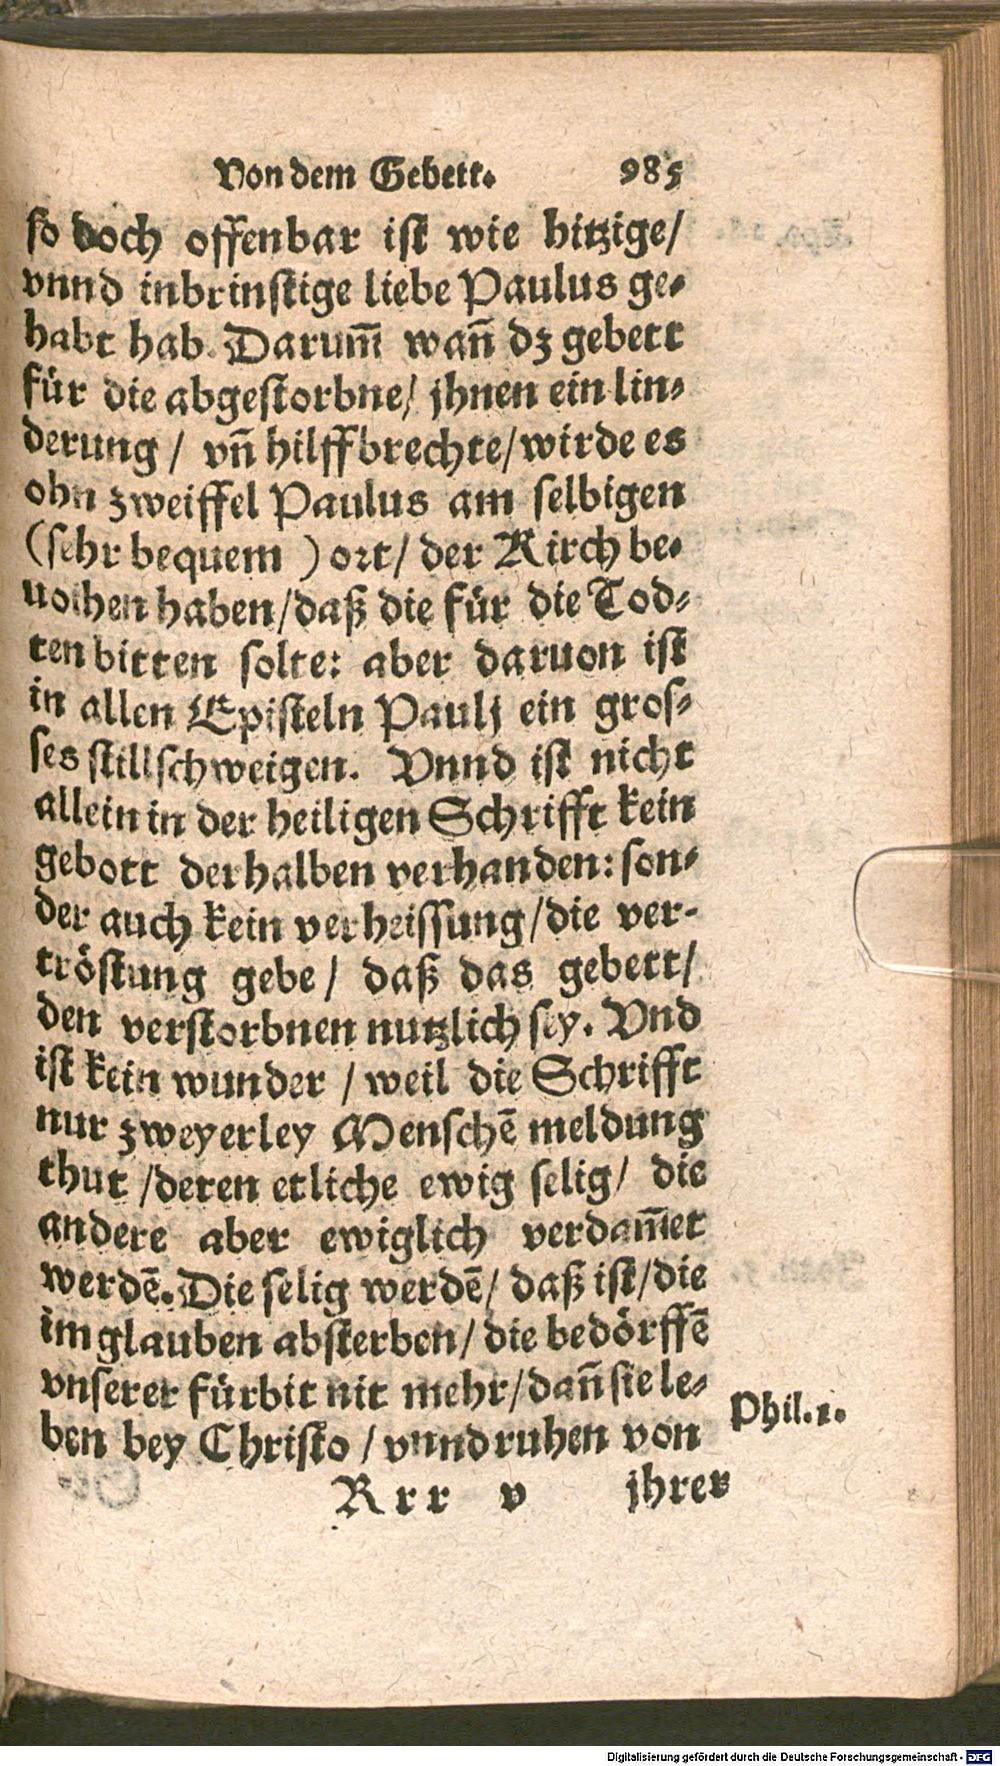 Von dem Gebett. 985
so doch offenbar ist wie hitzige/
vnnd inbrinstige liebe Paulus ge-
habt hab. Darum̄ wañ dz gebett
für die abgestorbne/ jhnen ein lin-
derung / vñ hilff brechte/ wirde es
ohn zweiffel Paulus am selbigen
(sehr bequem ) ort/ der Kirch be-
uolhen haben/ daß die für die Tod-
ten bitten solte: aber daruon ist
in allen Episteln Paulj ein gros-
ses stillschweigen. Vnnd ist nicht
allein in der heiligen Schrifft kein
gebott derhalben verhanden: son-
der auch kein verheissung/ die ver-
tröstung gebe / daß das gebett/
den verstorbnen nutzlich sey. Vnd
ist kein wunder / weil die Schrifft
nur zweyerley Menschē meldung
thut / deren etliche ewig selig/ die
andere aber ewiglich verdam̄et
werdē. Die selig werdē/ daß ist/ die
im glauben absterben/ die bedörffē
vnserer fürbit nit mehr/ dañ sie le-
ben bey Christo / vnnd ruhen von
Phil. 1.
Rrr v jhrer
Digitalisierung gefördert durch die Deutsche Forschungsgemeinschaft - DFG